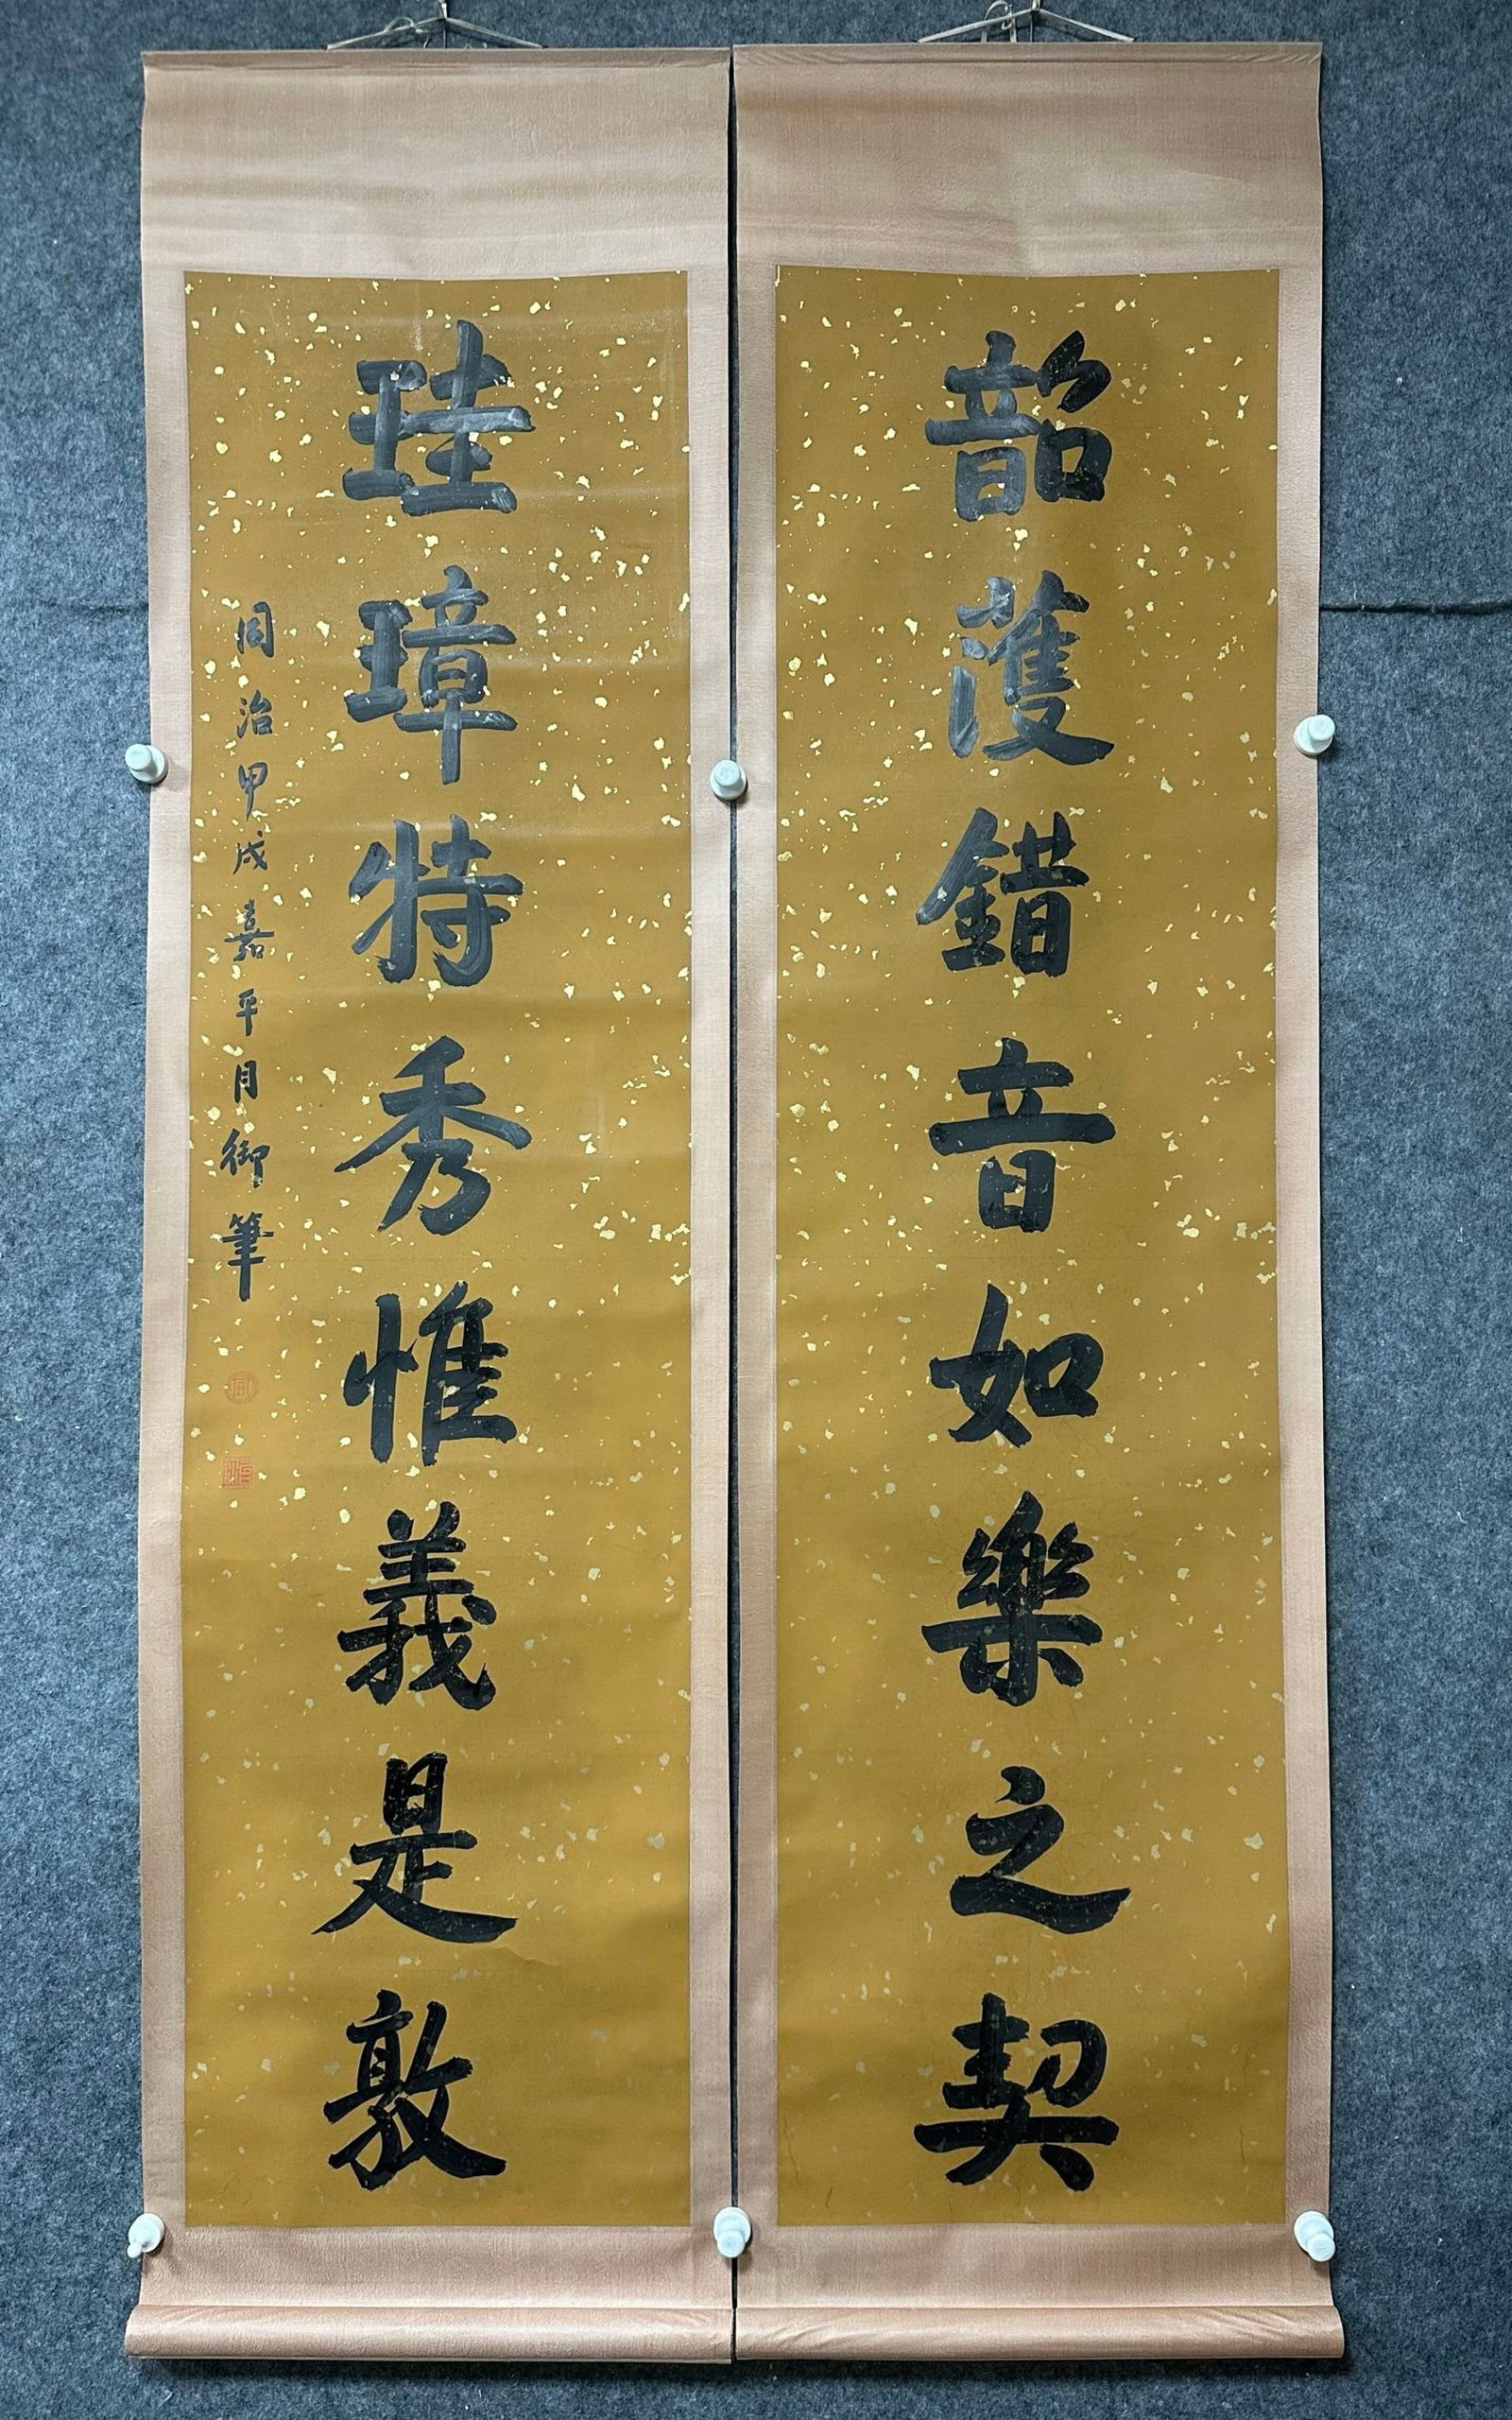 韶護錯音如樂之契
珪璋特秀惟義是敦
同治甲戌嘉平月御筆
同
治